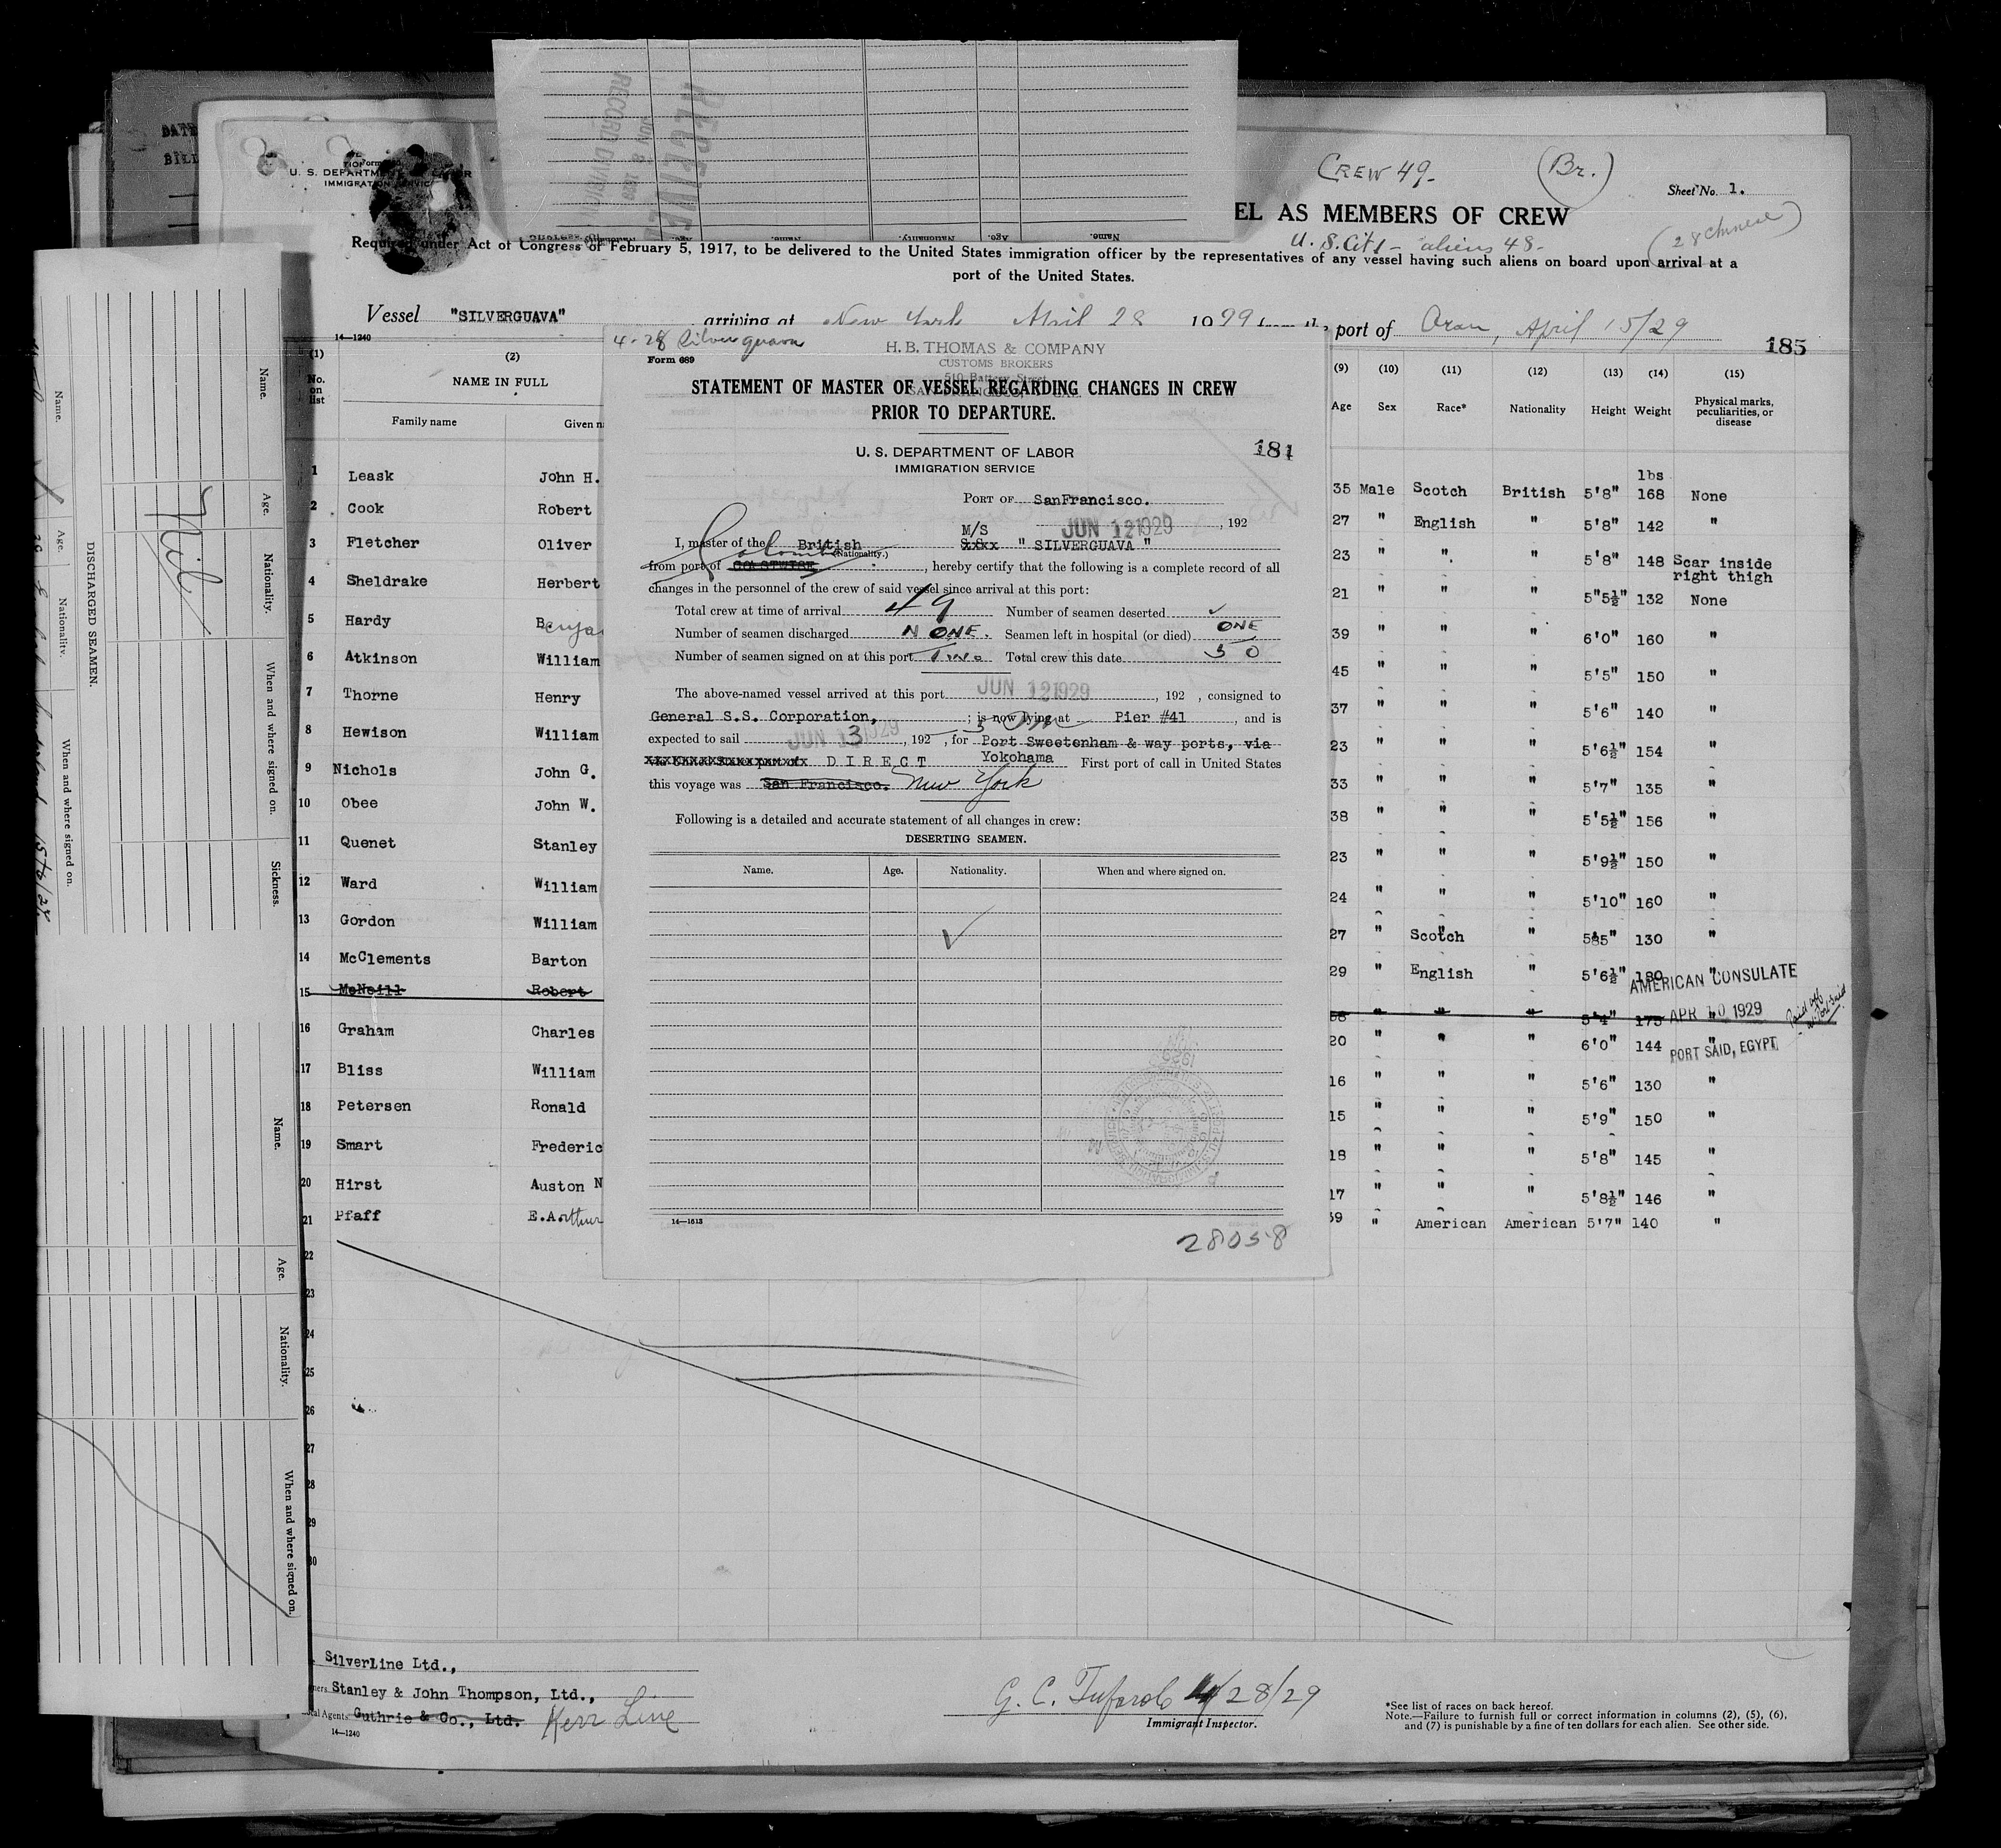 CREW 49-
(Br.)
Sheet No. 1.
EL AS MEMBERS OF CREW
U.S. Cit 1 - aliens 48-
(28 Chinese)
U. S. DEPARTM LABOR
IMMIGRATION SERVIC
RECEIVED
JUN 8 1929
RECORD DIVISION
Required under Act of Congress of February 5, 1917, to be delivered to the United States immigration officer by the representatives of any vessel having such aliens on board upon arrival at a
port of the United States.
Vessel "SILVERGUAVA" arriving at New York April 28 1929 from the port of Oran, April 15/29
185
14—1240
(1) (2) (9) (10) (11) (12) (13) (14) (15)
No. on list NAME IN FULL Age Sex Race* Nationality Height Weight Physical marks, peculiarities, or disease
Family name Given n
lbs
1 Leask John H. 35 Male Scotch British 5'8" 168 None
2 Cook Robert 27 " English " 5'8" 142 "
3 Fletcher Oliver 23 " " " 5'8" 148 Scar inside right thigh
4 Sheldrake Herbert 21 " " " 5"5½" 132 None
5 Hardy Benja 39 " " " 6'0" 160 "
6 Atkinson William 45 " " " 5'5" 150 "
7 Thorne Henry 37 " " " 5'6" 140 "
8 Hewison William 23 " " " 5'6½" 154 "
9 Nichols John G. 33 " " " 5'7" 135 "
10 Obee John W. 38 " " " 5'5½" 156 "
11 Quenet Stanley 23 " " " 5'9½" 150 "
12 Ward William 24 " " " 5'10" 160 "
13 Gordon William 27 " Scotch " 5'5" 130 "
14 McClements Barton 29 " English " 5'6½" 180 "
15 McNeill Robert 58 " " " 5'4" 175 "
AMERICAN CONSULATE
APR 10 1929
PORT SAID, EGYPT
Paid off at Port Said
16 Graham Charles 20 " " " 6'0" 144 "
17 Bliss William 16 " " " 5'6" 130 "
18 Petersen Ronald 15 " " " 5'9" 150 "
19 Smart Frederic 18 " " " 5'8" 145 "
20 Hirst Auston N 17 " " " 5'8½" 146 "
21 Pfaff E.Arthur 39 " American American 5'7" 140 "
22
23
24
25
26
27
28
29
30
Silverline Ltd.,
Stanley & John Thompson, Ltd.,
al Agents Guthrie & Co., Ltd. Kerr Line
14—1240
4/28/29
Immigrant Inspector.
*See list of races on back hereof.
Note.—Failure to furnish full or correct information in columns (2), (5), (6),
and (7) is punishable by a fine of ten dollars for each alien. See other side.
4-28 Silverguava
Form 689
H. B. THOMAS & COMPANY
CUSTOMS BROKERS
510 Battery Street
STATEMENT OF MASTER OF VESSEL REGARDING CHANGES IN CREW
PRIOR TO DEPARTURE.
U. S. DEPARTMENT OF LABOR
IMMIGRATION SERVICE
181
PORT OF SanFrancisco.
JUN 12 1929, 192
I, master of the British (Nationality.) M/S "SILVERGUAVA"
Colombo
from port of COASTWISE, hereby certify that the following is a complete record of all
changes in the personnel of the crew of said vessel since arrival at this port:
Total crew at time of arrival 49 Number of seamen deserted
Number of seamen discharged NONE. Seamen left in hospital (or died) ONE
Number of seamen signed on at this port Two Total crew this date 50
The above-named vessel arrived at this port JUN 12 1929, 192 , consigned to
General S.S. Corporation, ; is now lying at Pier #41, and is
expected to sail JUN 13 1929, 192 , 5 PM for Port Sweetenham & way ports, via
DIRECT Yokohama First port of call in United States
this voyage was San Francisco. New York
Following is a detailed and accurate statement of all changes in crew:
DESERTING SEAMEN.
Name. Age. Nationality. When and where signed on.
14—1613
28058
DISCHARGED SEAMEN.
Name. Age. Nationality. When and where signed on.
Name. Age. Nationality. When and where signed on. Sickness.
Nil
Name. Age. Nationality. When and where signed on.